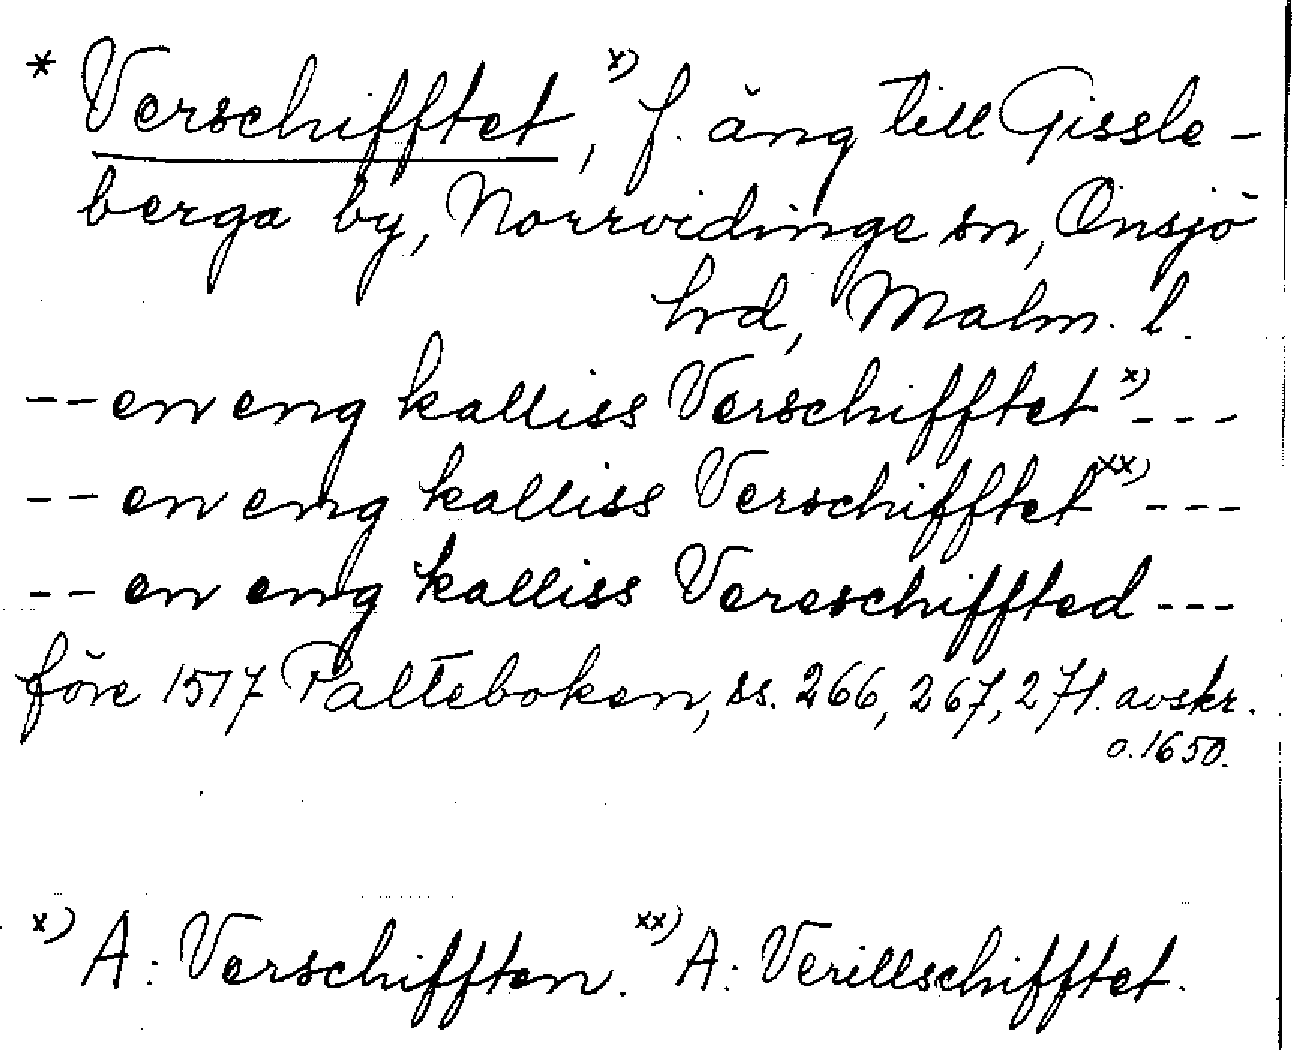 * Verschifftet, x) f. äng till Gissle-
berga by, Norrvidinge sn, Onsjö
hrd, Malm. l.
-- en eng kalliss Verschifftet x) ---
-- en eng kalliss Verschifftet xx) ---
-- en eng kalliss Vereschiffted ---
före 1517 Palteboken, ss. 266, 267, 271. avskr.
o. 1650.
x) A: Verschifften. xx) A: Verillschifftet.